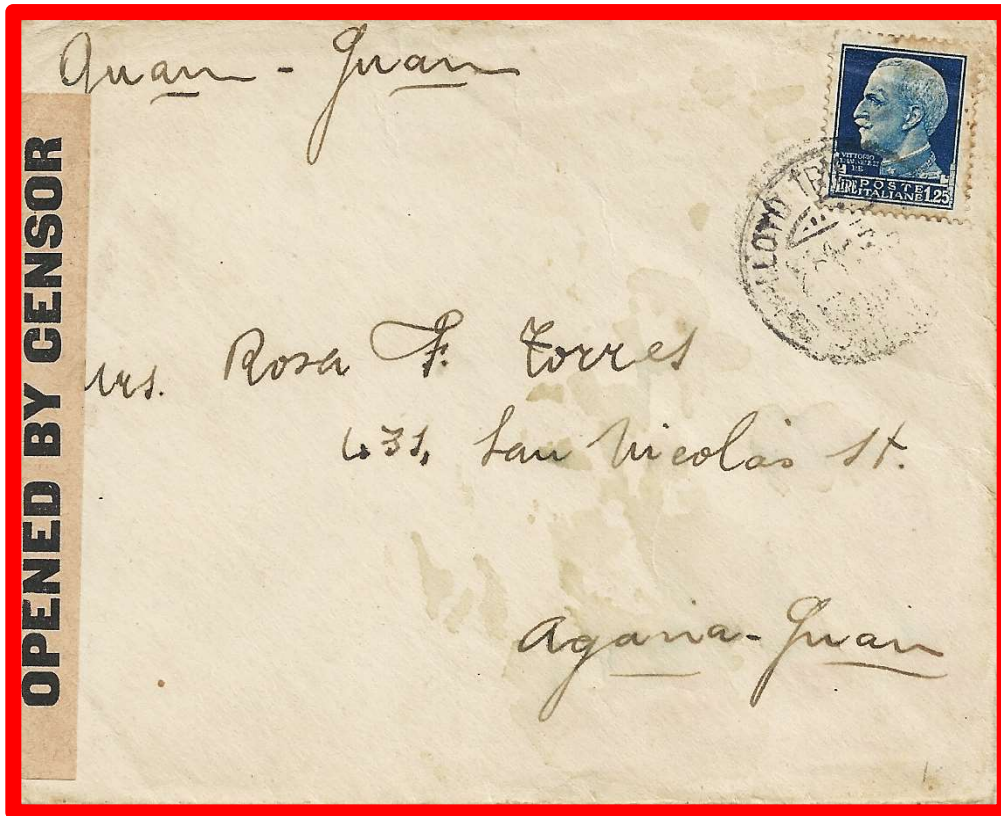 Guam - Guam
OPENED BY CENSOR
VITTORIO
EMANUELE
LIRE POSTE ITALIANE 1.25
Mrs. Rosa F. Torres
631, San Nicolás St.
Agana - Guam